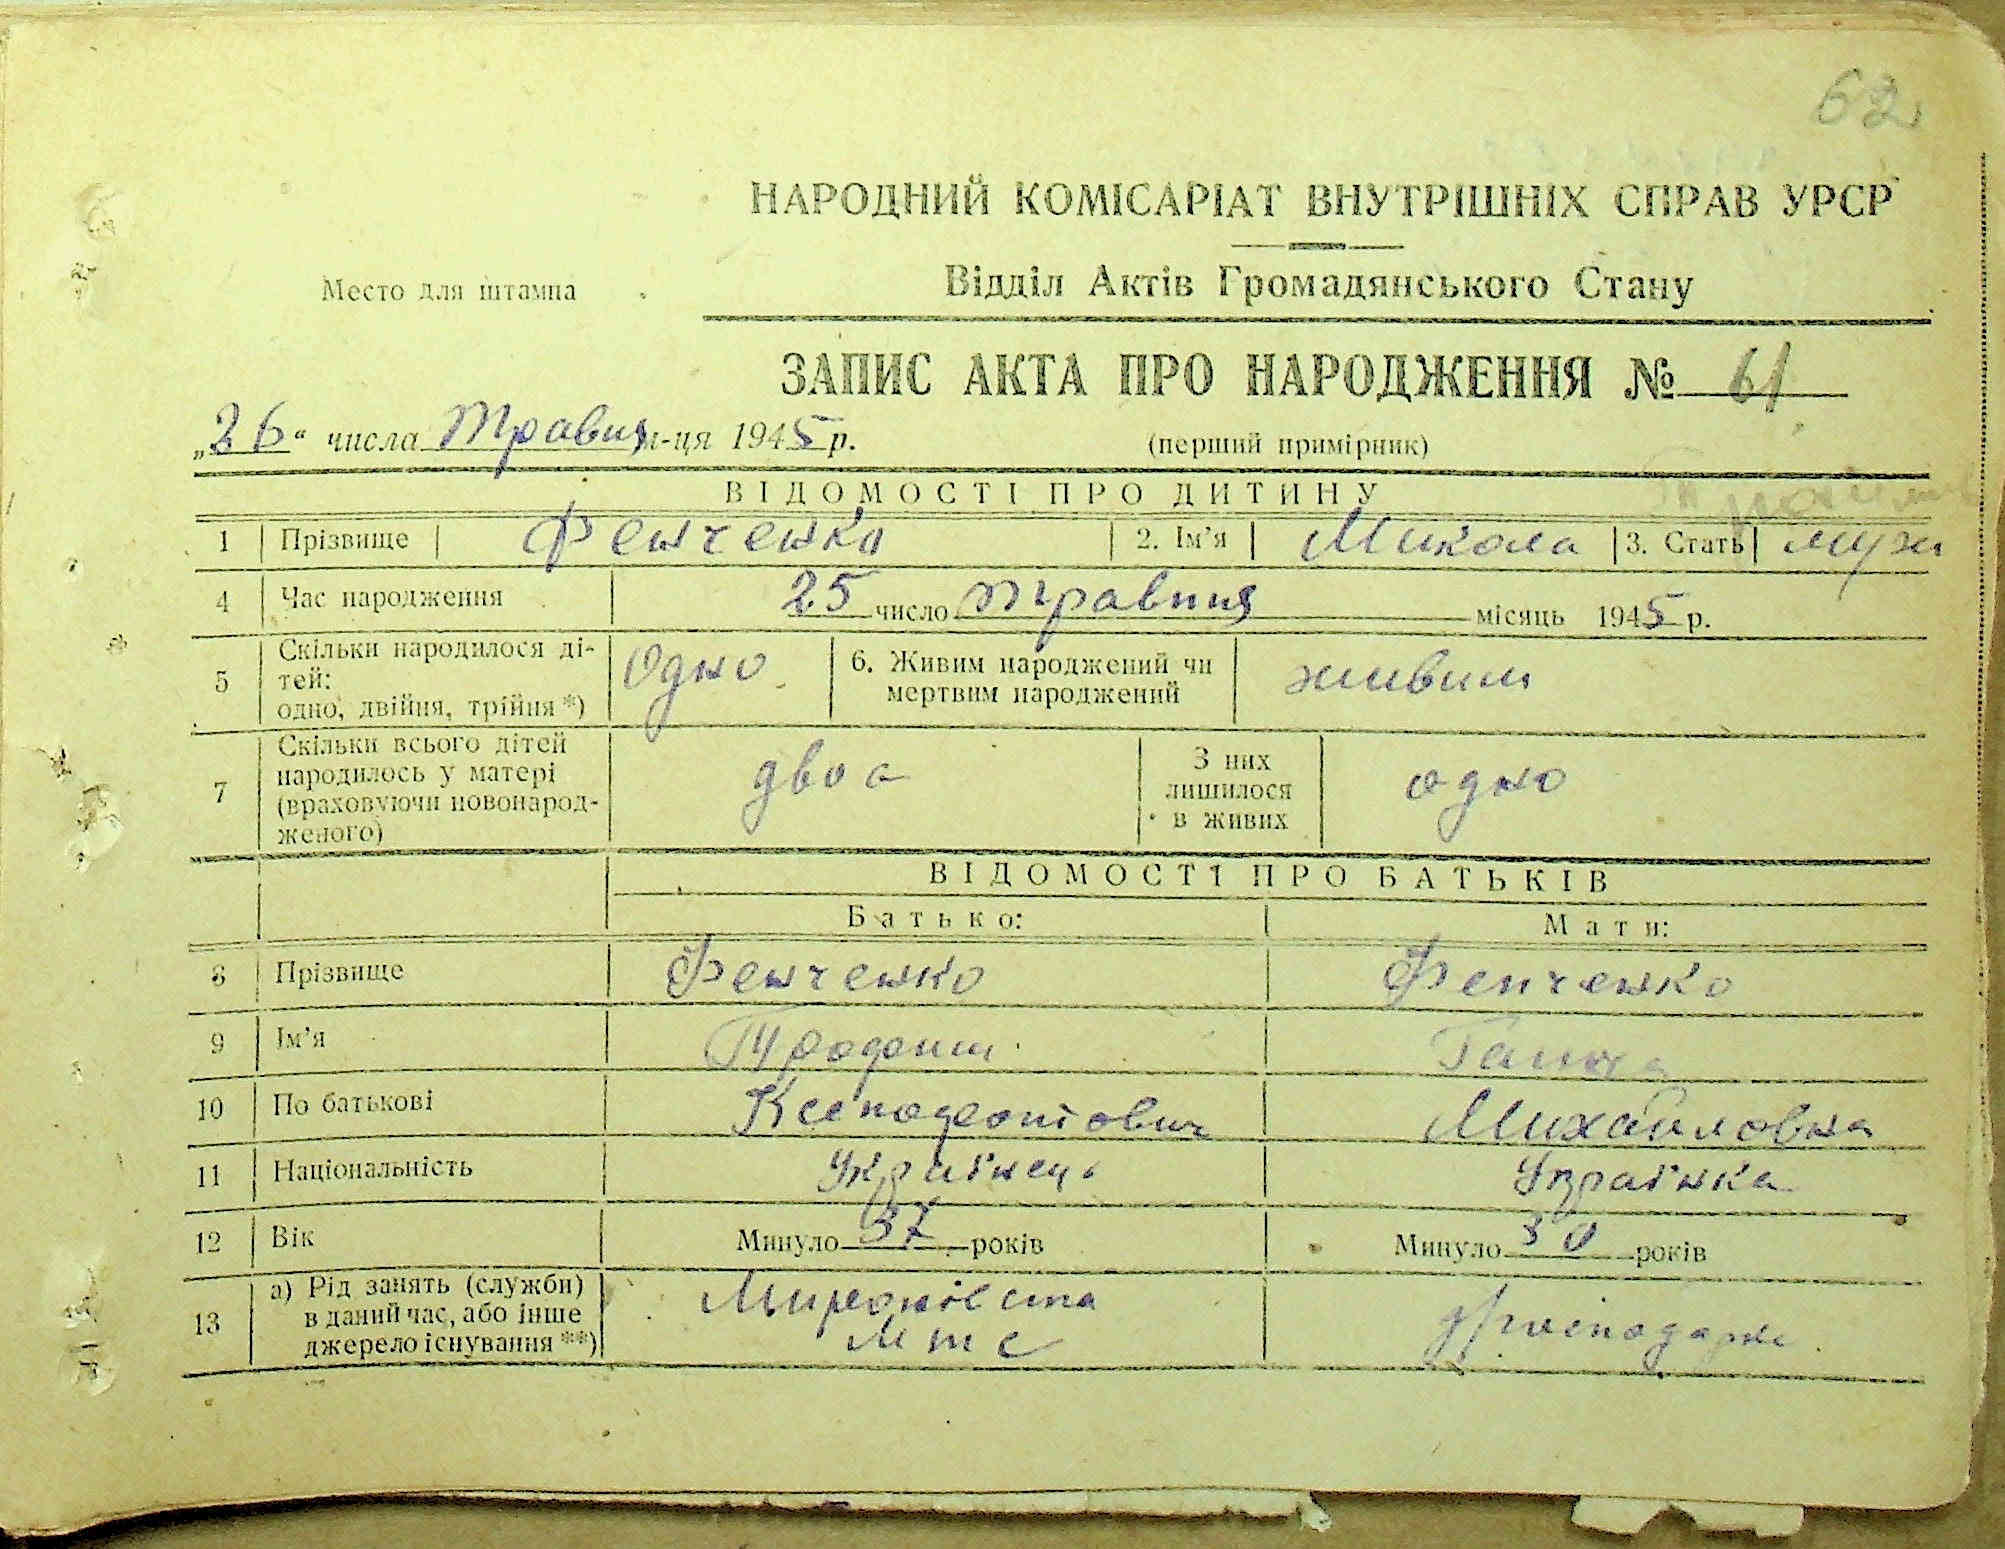 62
НАРОДНИЙ КОМІСАРІАТ ВНУТРІШНІХ СПРАВ УРСР
Место для штампа
Відділ Актів Громадянського Стану
ЗАПИС АКТА ПРО НАРОДЖЕННЯ № 61
„26“ числа Травня м-ця 1945 р.
(перший примірник)
ВІДОМОСТІ ПРО ДИТИНУ
1 Прізвище Фенченко 2. Ім’я Микола 3. Стать муж
4 Час народження 25 число травня місяць 1945 р.
5 Скільки народилося ді-
тей:
одно, двійня, трійня *) Одно 6. Живим народжений чи
мертвим народжений живим
7 Скільки всього дітей
народилось у матері
(враховуючи новонарод-
женого) двоє З них
лишилося
в живих одно
ВІДОМОСТІ ПРО БАТЬКІВ
Батько: Мати:
8 Прізвище Фенченко Фенченко
9 Ім’я Ганна
10 По батькові Михайловна
11 Національність Українець Українка
12 Вік Минуло 37 років Минуло 30 років
13 а) Рід занять (служби)
в даний час, або інше
джерело існування **)
мтс